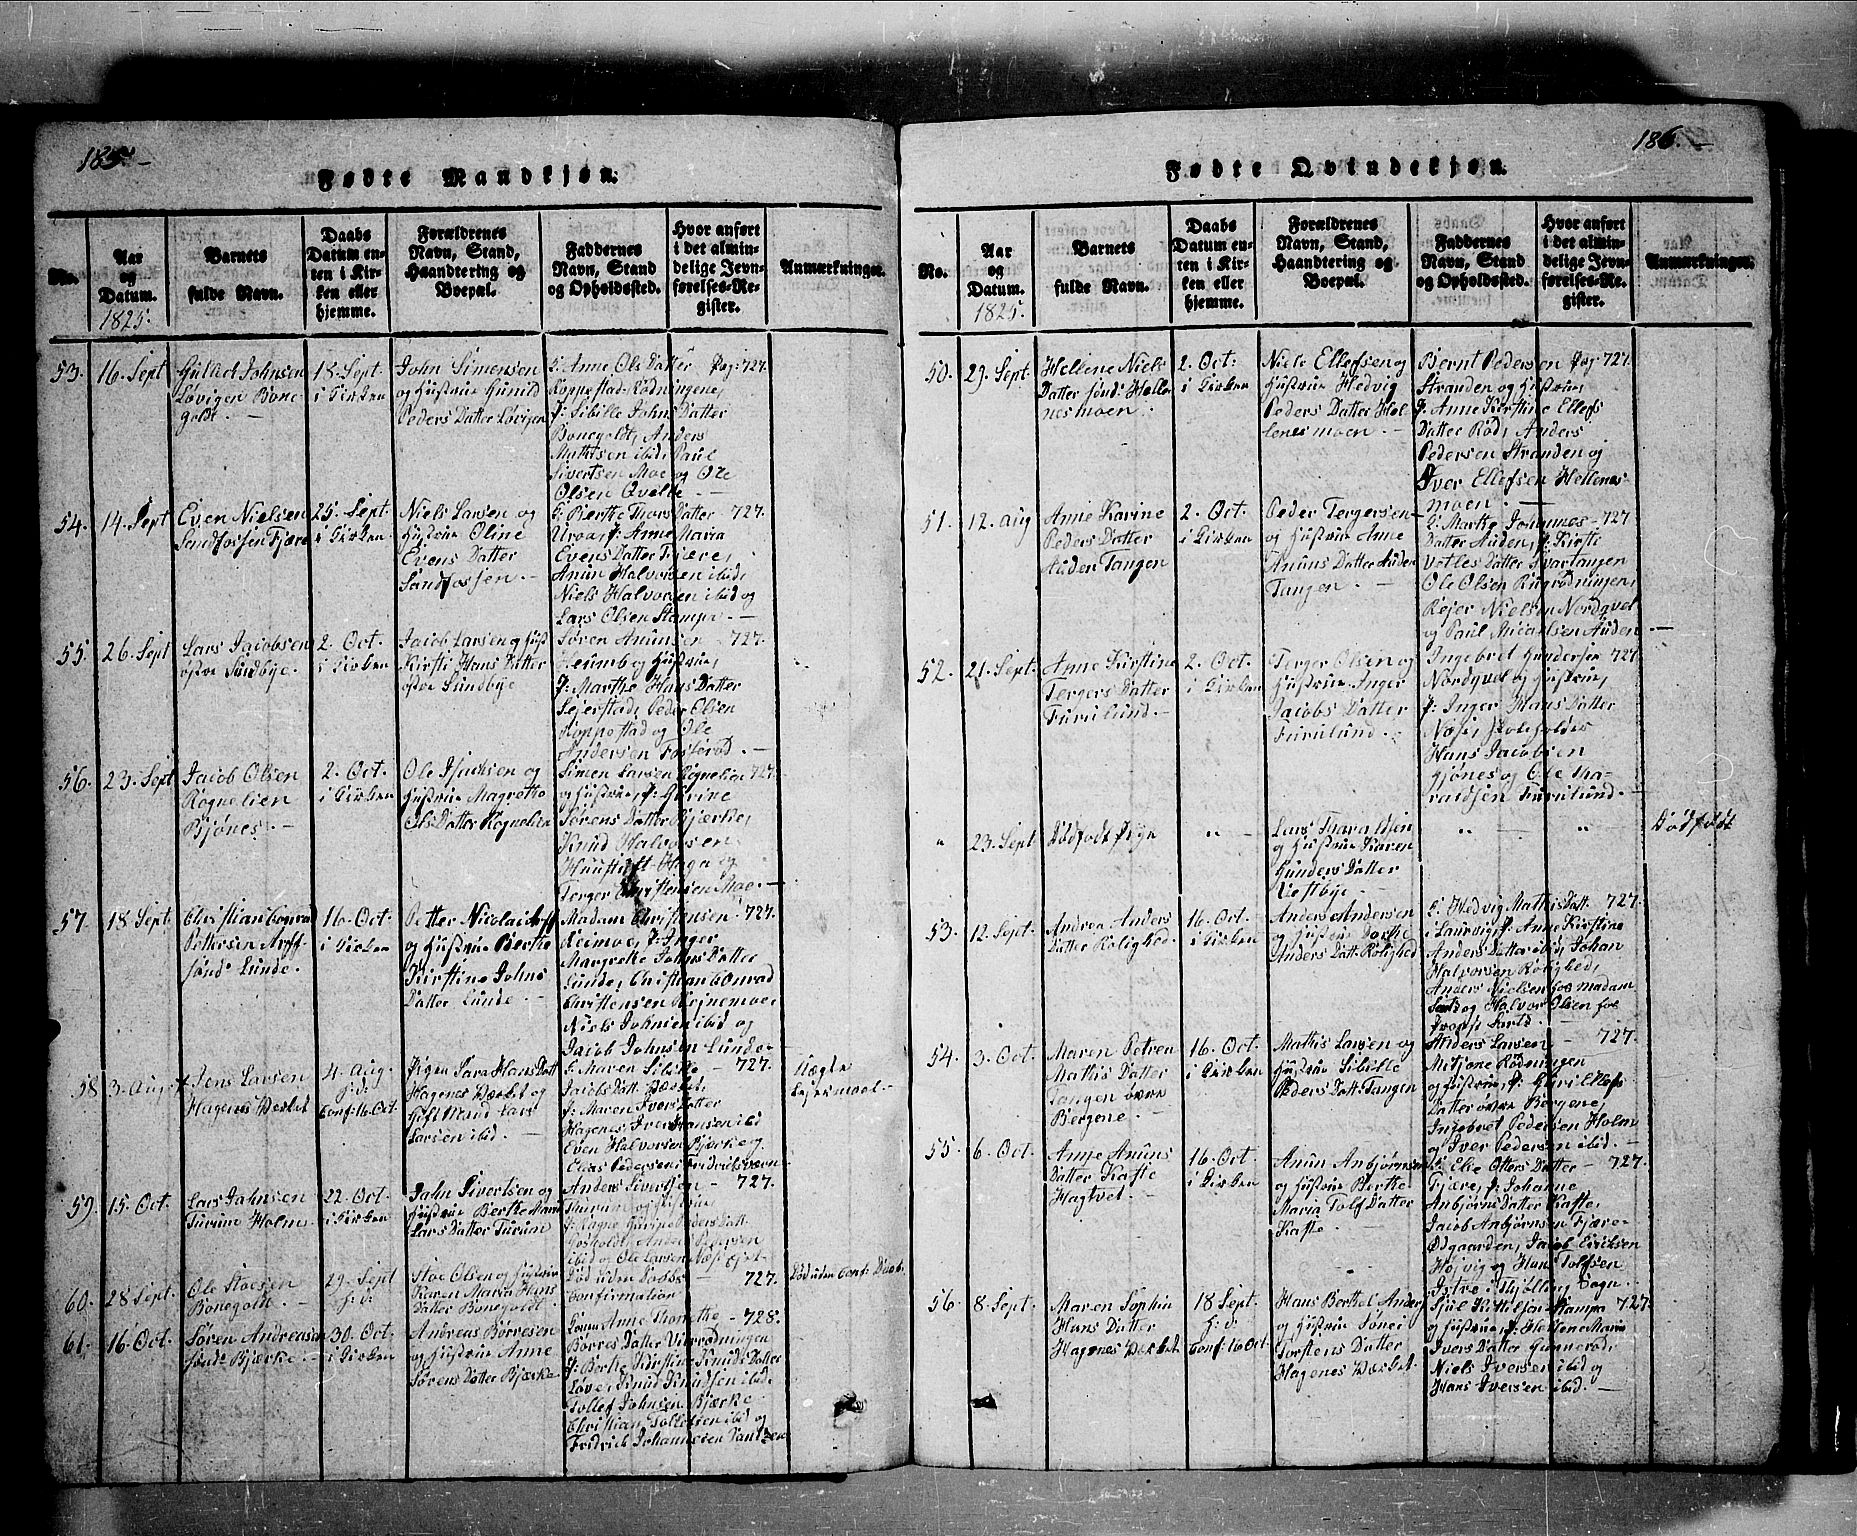 185.
Fødte Mandkjøn.
No.
Aar
og
Datum.
1825.
Barnets
fulde Navn.
Daabs
Datum en-
ten i Kir-
ken eller
hjemme.
Forældrenes
Navn, Stand,
Haandtering og
Boepæl.
Faddernes
Navn, Stand
og Opholdssted.
Hvor anført
i det almin-
delige Jevn-
førelses-Re-
gister.
Anmærkninger.
53.
16. Sept
Johnsen
Løvigen Bone
goldt. -
18. Sept.
i Kirken
John Simensen
og Hustrue Gunild
Peders Datter Løvigen
Anne Ols Datter
Koppestad-Rødningene,
J: Sibille Johns Datter
Bonegoldt, Anders
Mathisen ibid, Paul
Sivertsen Moe og Ole
Olsen Qvelle. -
Pag: 727.
54.
14. Sept
Even Nielsen
Sandfossen Fjære
25. Sept.
i Kirken
Niels Larsen og
Hustrue Oline
Evens Datter
Sandfossen. -
Berthe Thors Datter - 727.
J: Anne Maria
Evens Datter Fjære,
Anun Halvorsen ibid,
Niels Halvorsen ibid og
Lars Olsen Stampe. -
55.
26. Sept
Lars Jacobsen
østre Sundbye.
2. Oct.
i Kirken
Jacob Larsen og Hust
Kirsti Hans Datter
østre Sundbye
Søren Anunsen - 727.
og Hustrue,
J: Marthe Hans Datter
Sejerstad, Peder Olsen
Koppestad og Ole
Andersen
56.
23. Sept
Jacob Olsen
Rognelien
Bjønes. -
2. Oct.
i Kirken
Ole Isachsen og
Hustrue Magrethe
Ols Datter Rognelien
Simen Larsen Rognelien 727.
og Hustrue, J:
Sørens Datter Bjærke,
Knud Halvorsen
Haga og
Terger Christensen Moe. -
57.
18. Sept.
Christian Conrad
Pettersen Arff
sønd: Lunde. -
16. Oct.
i Kirken
Petter Nicolai Arff
og Hustrue Berthe
Kirstine Johns
Datter Lunde. -
Madam Christensen - 727.
J: Inger
Margrethe Johns Datter
Lunde, Christian Conrad
Christensen
Niels Johnsen ibid og
Jacob Johnsen Lunde -
58
3. Aug
Jens Larsen
Hagenes Værket
4. Aug.
h: d:
Conf: 16. Oct.
Pigen Sara Hans Datt
Hagenes Værket og
Gift Mand Lars
Larsen ibid. -
Maren Sibille - 727.
Jacobs Datt. Værket,
J: Maren Ivers Datter
Hagenes, Iver Hansen ibid
Even Halvorsen Bjærke og
Pedersen Fridriksværn
Uægte
Lejermaal. -
59.
15. Oct.
Lars Johnsen
Turum Holm
22. Oct.
i Kirken
John Sivertsen og
Hustrue Berthe Maria
Lars Datter Turum
Anders Sivertsen - 727.
Thurum og Hustrue
Peders Datt.
Anders Pedersen
ibid og Ole Larsen
60.
28 Sept.
Ole Stoesen
Bonegoldt. -
29. Sept
h: d:
Stoe Olsen og Hustrue
Karen Maria Hans
Datter Bonegoldt. -
Død uden Daabs - 727.
Confirmation
Død uden Conf: Daab.
61.
16. Oct.
Søren Andreasen
sønd: Bjærke. -
30. Oct.
i Kirken
Andreas Børresen
og Hustrue Anne
Sørens Datter Bjærke
Anne Thorethe - 728.
Børres Datter
J: Berthe Kirstine Knuds Datter
Løve, Knud Knudsen ibid,
Tollef Johnsen Bjærke
Christian Tollefsen ibid og
Fridrich Johannesen

186.
Fødte Qvindekjøn.
No.
Aar
og
Datum.
1825.
Barnets
fulde Navn.
Daabs
Datum en-
ten i Kir-
ken eller
hjemme.
Forældrenes
Navn, Stand,
Haandtering og
Boepæl.
Faddernes
Navn, Stand
og Opholdssted.
Hvor anført
i det almin-
delige Jevn-
førelses-Re-
gister.
Anmærkninger.
50.
29. Sept.
Hellene Niels
Datter sønd: Helle-
nesmoen.
2. Oct:
i Kirken
Niels Ellefsen og
Hustrue Hedvig
Peders Datter Hel
lenesmoen. -
Bernt Pedersen Pag: 727.
Stranden og Hustrue,
J: Anne Kirstine Ellefs
Datter Rød, Anders
Pedersen Stranden og
Iver Ellefsen Hellenes-
moen -
51.
12. Aug
Anne Karine
Peders Datter
Auden Tangen
2. Oct.
i Kirken
Peder Tergersen
og Hustrue Anne
Anuns Datter Auden
Tangen. -
Marthe Johannes - 727
Datter Auden, J: Kirsti
Vetles Datter Svartangen
Ole Olsen
Rejer Nielsen Nordqvel
og Paul Micaelsen Auden. -
52.
21. Sept.
Anne Kirstine
Tergers Datter
Furulund. -
2. Oct.
i Kirken
Terger Olsen og
Hustrue Inger
Jacobs Datter
Furulund. -
Ingebret Gundersen 727.
Nordqvel og Hustrue,
J: Inger Hans Datter
Hans Jacobsen
og Ole Tha-
raldsen Furulund. -
"
23. Sept
Dødfødt Pige
"
Lars Tharaldsen
og Hustrue Karen
Gunders Datter
Vestbye. -
"
"
Dødfødt
53.
12. Sept.
Andrea Anders
Datter Rolighed.
16. Oct.
i Kirken
Anders Andersen
og Hustrue Dorthe
Anders Datt. Rolighed
Hedvig Mathis Datt. 727.
i Laurvig, J: Anne Kirstine
Anders Datter ibid, Johan
Halvorsen Rolighed,
Anders Nielsen for Madam
og Halvor Olsen for
54.
3. Oct.
Maren Petrea
Mathis Datter
Tangen øvre
Bergene.
16. Oct.
i Kirken
Mathis Larsen og
Hustrue Sibille
Peders Datt: Tangen
Anders Larsen - 727.
Rødningen
og Hustrue, J: Guri Ellefs
Datter øvre Bergene,
Ingebret Pedersen Holm
og Iver Pedersen ibid. -
55.
6. Oct.
Anne Anuns
Datter Kaste
Hagtvet. -
16. Oct.
i Kirken
Anun Anbjørnsen
og Hustrue Berthe
Maria Tolfs Datter
Kaste. -
Else Otters Datter - 727.
Fjære, J: Johanne
Anbjørns Datter Kaste,
Jacob Anbjørnsen Fjære-
Ødgaarden, Jacob Eriksen
Højvig og Hans Tolfsen
Istre i Thjølling Sogn.
56.
8. Sept.
Maren Sophia
Hans Datter
Hagenes Værket
18 Sept.
h: d:
Conf: 16 Oct.
Hans Berthel Anders
og Hustrue
Torstens Datter
Hagenes Værket.
Kittilsen Stampa 727.
og Hustrue, J: Hellene Maria
Ivers Datter Gunnerød,
Niels Iversen ibid og
Hans Iversen ibid. -